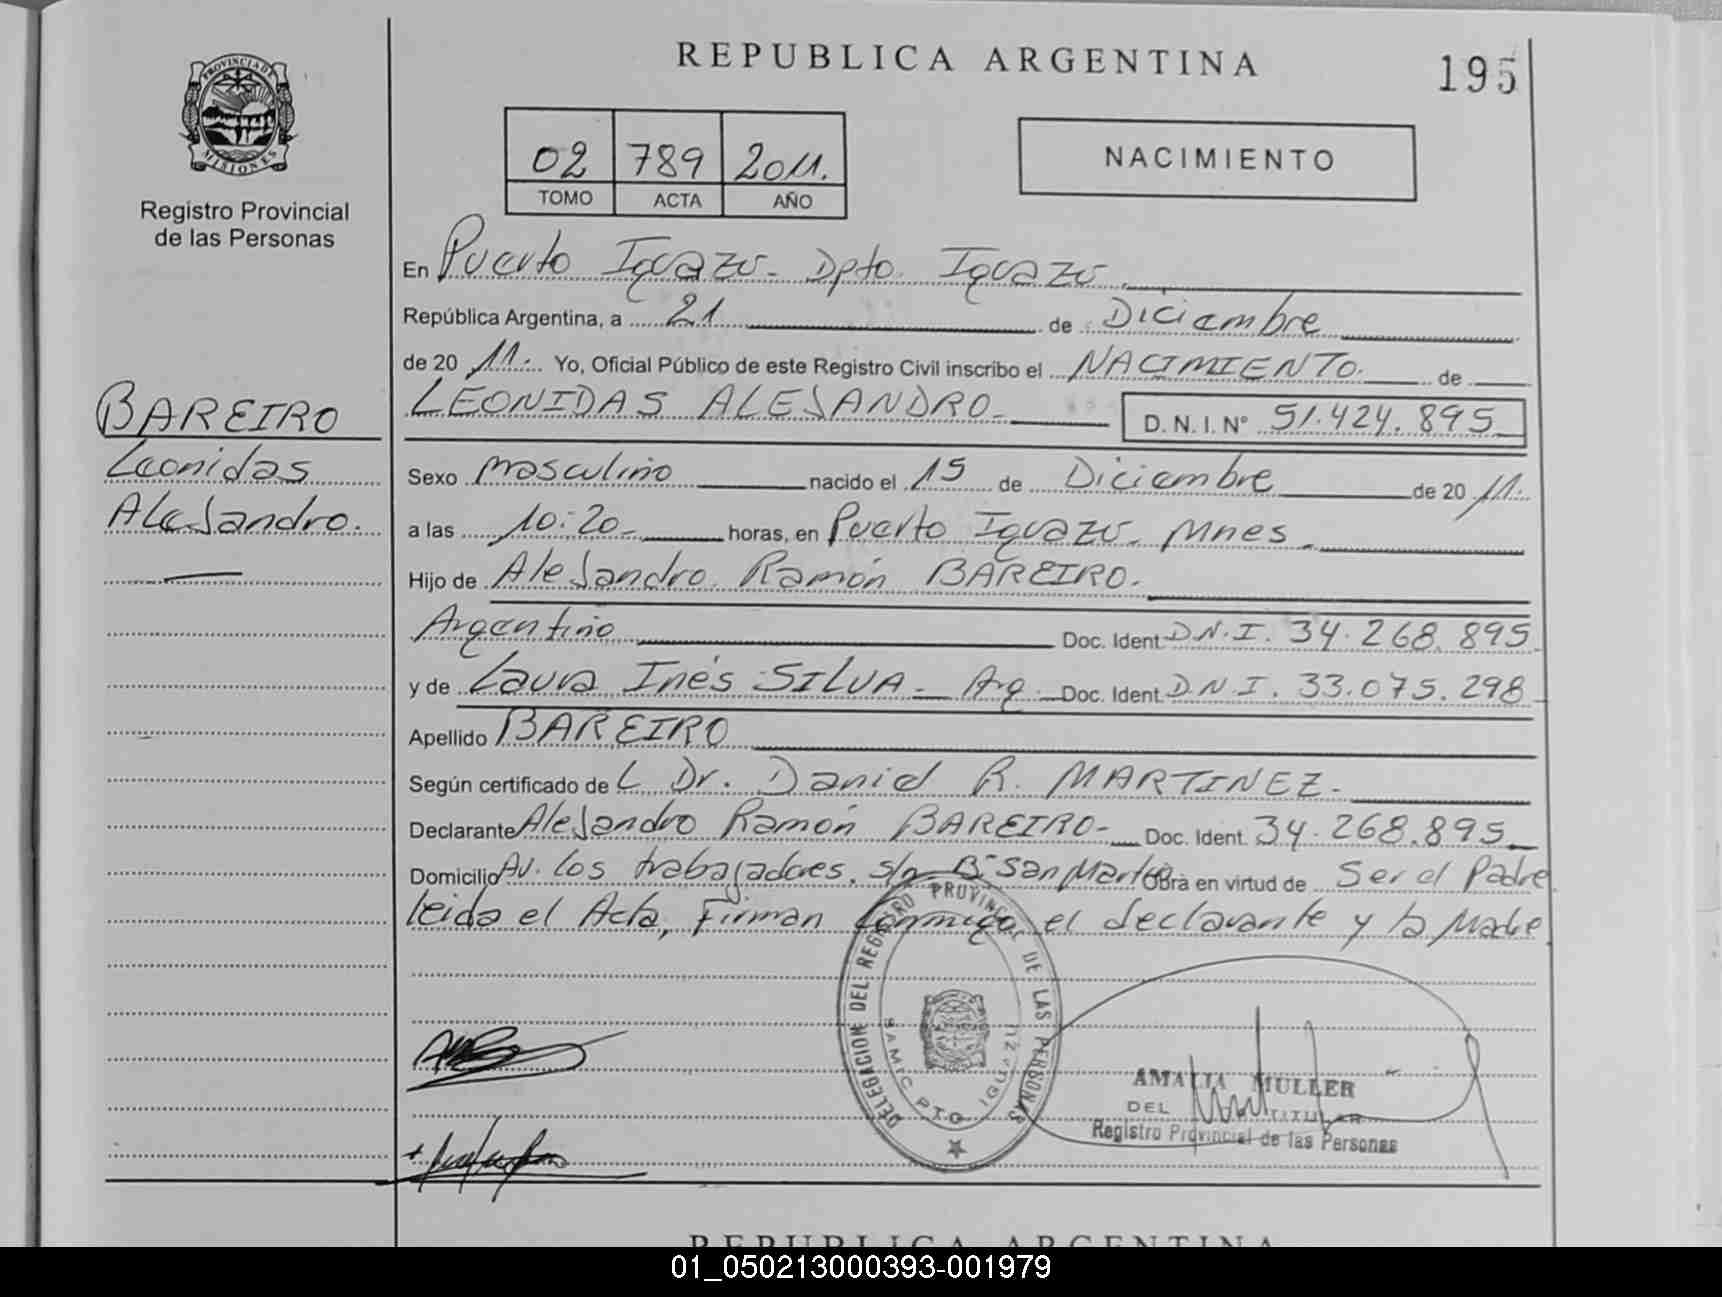 REPUBLICA ARGENTINA
195
PROVINCIA DE
MISIONES
Registro Provincial
de las Personas
02 789 2011.
TOMO ACTA AÑO
NACIMIENTO
En Puerto Iguazú - Dpto. Iguazú
República Argentina, a 21 de Diciembre
de 20 11. Yo, Oficial Público de este Registro Civil inscribo el NACIMIENTO. de
LEONIDAS ALEJANDRO - D. N. I. N° 51.424.895
BAREIRO
Leonidas
Alejandro.
Sexo masculino nacido el 15 de Diciembre de 20 11.
a las 10:20 - horas, en Puerto Iguazú - Mnes -
Hijo de Alejandro Ramón BAREIRO.
Argentino Doc. Ident. D.N.I. 34.268.895
y de Laura Inés SILVA - Arg. Doc. Ident. D.N.I. 33.075.298
Apellido BAREIRO
Según certificado de L Dr. Daniel R. MARTINEZ -
Declarante Alejandro Ramón BAREIRO - Doc. Ident. 34.268.895
Domicilio Av. los trabajadores. s/n B° San Martín Obra en virtud de Ser el Padre
leida el Acta, Firman conmigo el declarante y la Madre
DELEGACION DEL REGISTRO PROVINCIAL DE LAS PERSONAS
SAMIC PTO IGUAZU
AMALIA MULLER
DEL TITULAR
Registro Provincial de las Personas
REPUBLICA ARGENTINA
01_050213000393-001979